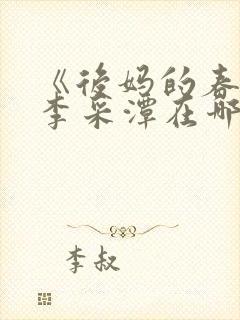 《后妈的春
李采潭在哪
李叔